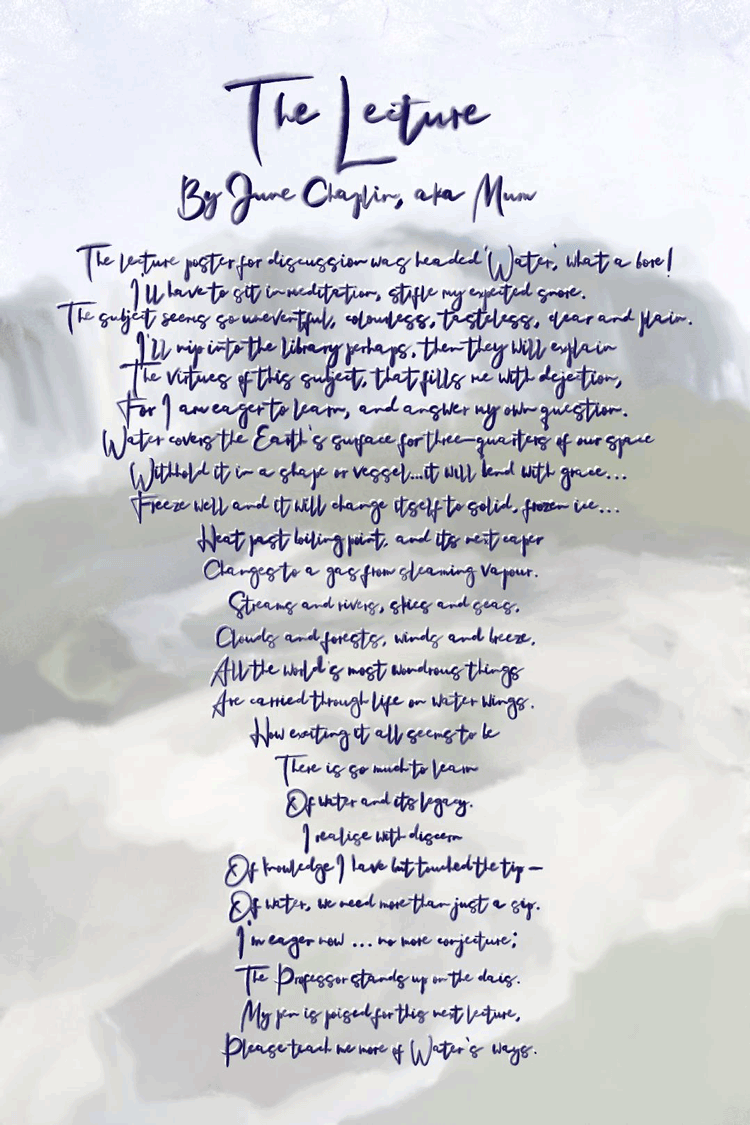 The Lecture
By June Chaplin, aka Mum
The lecture poster for discussion was headed 'Water,' what a bore!
I'll have to sit in meditation, stifle my expected snore.
The subject seems so uneventful, colourless, tasteless, clear and plain.
I'll nip into the library perhaps, then they will explain
The virtues of this subject, that fills me with dejection,
For I am eager to learn, and answer my own question.
Water covers the Earth's surface for three-quarters of our space
Withhold it in a shape or vessel...it will bend with grace...
Freeze well and it will change itself to solid, frozen ice...
Heat past boiling point, and its next caper
Changes to a gas from steaming vapour.
Streams and rivers, skies and seas,
Clouds and forests, winds and breeze,
All the world's most wondrous things
Are carried through life on water wings.
How exciting it all seems to be
There is so much to learn
Of water and its legacy.
I realise with discern
Of knowledge I have but touched the tip –
Of water, we need more than just a sip.
I'm eager now ... no more conjecture;
The Professor stands up on the dais.
My pen is poised for this next lecture,
Please teach me more of Water's ways.